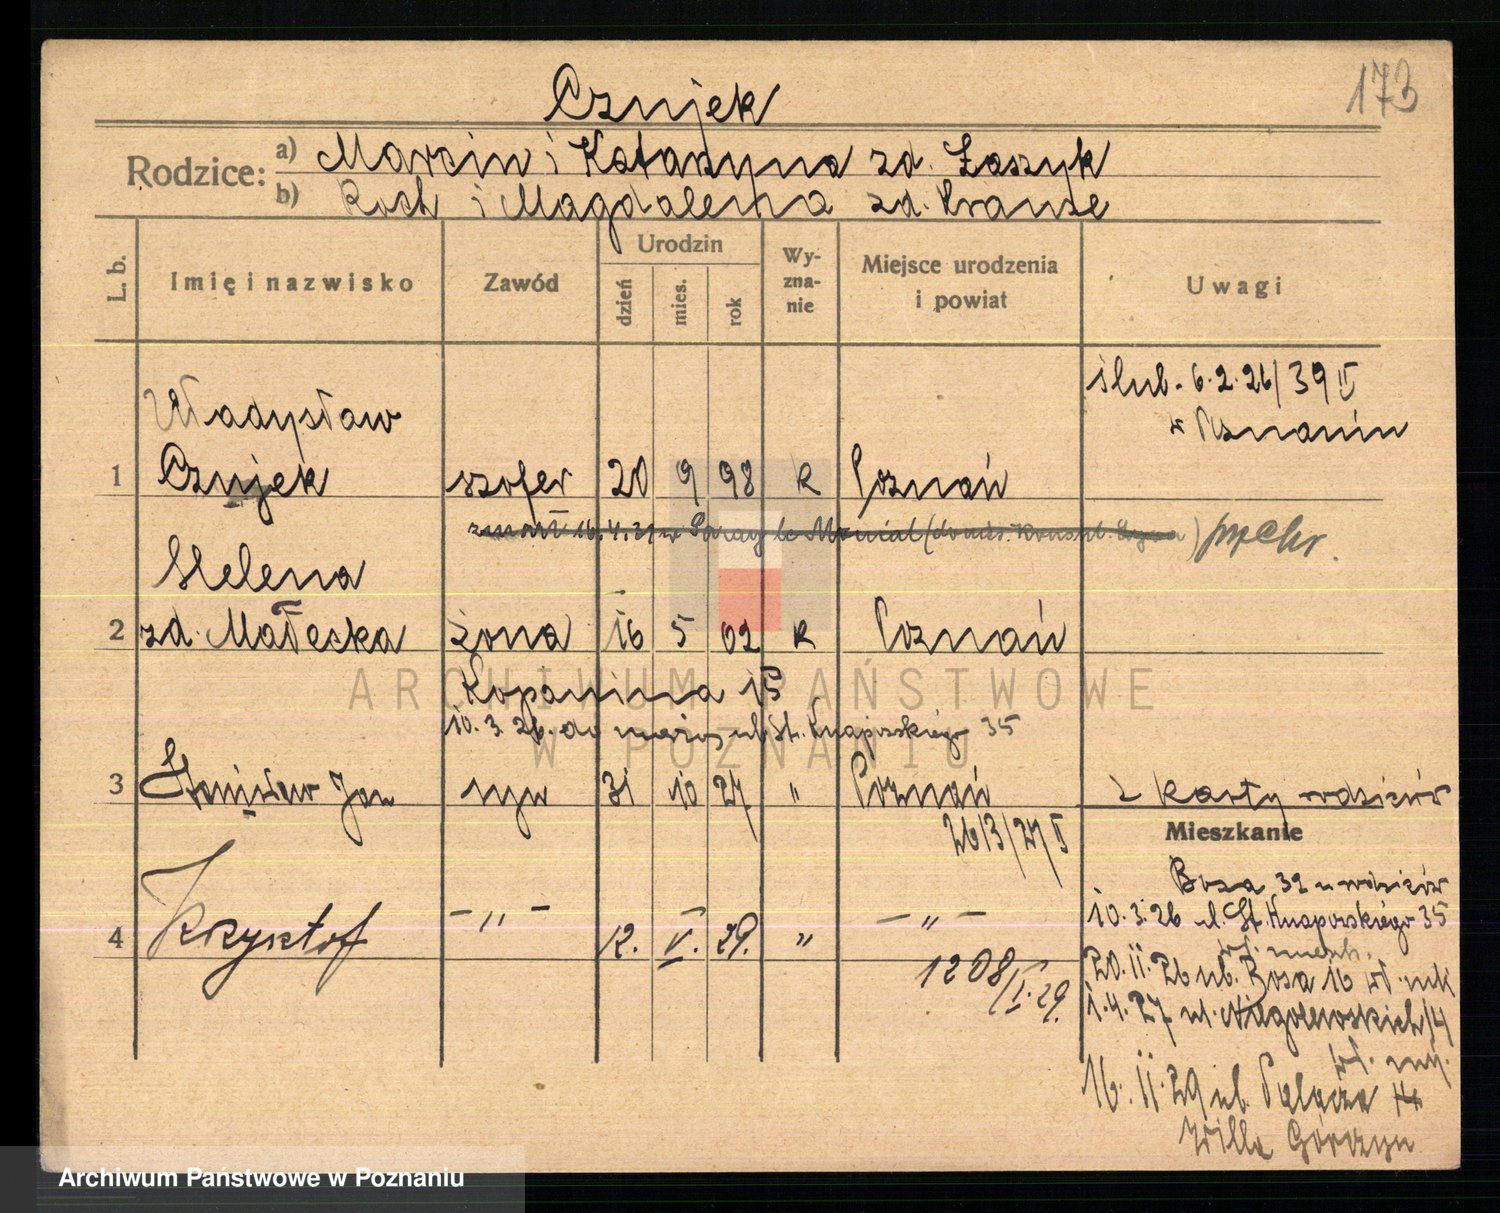 173
Czujek
Rodzice:
a) Marcin i Katarzyna zd. Łaszyk
b) Roch i Magdalena zd. Krause
L. b.
Imię i nazwisko
Zawód
Urodzin
dzień
mies.
rok
Wy-
zna-
nie
Miejsce urodzenia
i powiat
Uwagi
ślub. 6.2.26/39 II
w Poznaniu
Władysław
1 Czujek szofer 20 9 98 k Poznań
zmarł 16.4.31 w Paray le Monial (donies. Konsul.
Helena
2 zd. Małecka żona 16 5 02 k Poznań
Kopanina 15
10.3.26. do męża, ul. St. Knaporskiego 35
3 Stanisław Jan syn 31 10 27 " Poznań
2613/27/II
z karty rodziców
Mieszkanie
4 Krzysztof - " - 12. V. 29. " - " -
1208/V.29.
Bosa 32 u rodziców
10.3.26 ul. St. Knaporskiego 35
20.11.26 ul. Bosa 16
1.4.27 ul. Niegolewskich 14
16.11.29 ul. Palacza
Willa Górczyn
ARCHIWUM PAŃSTWOWE
W POZNANIU
Archiwum Państwowe w Poznaniu